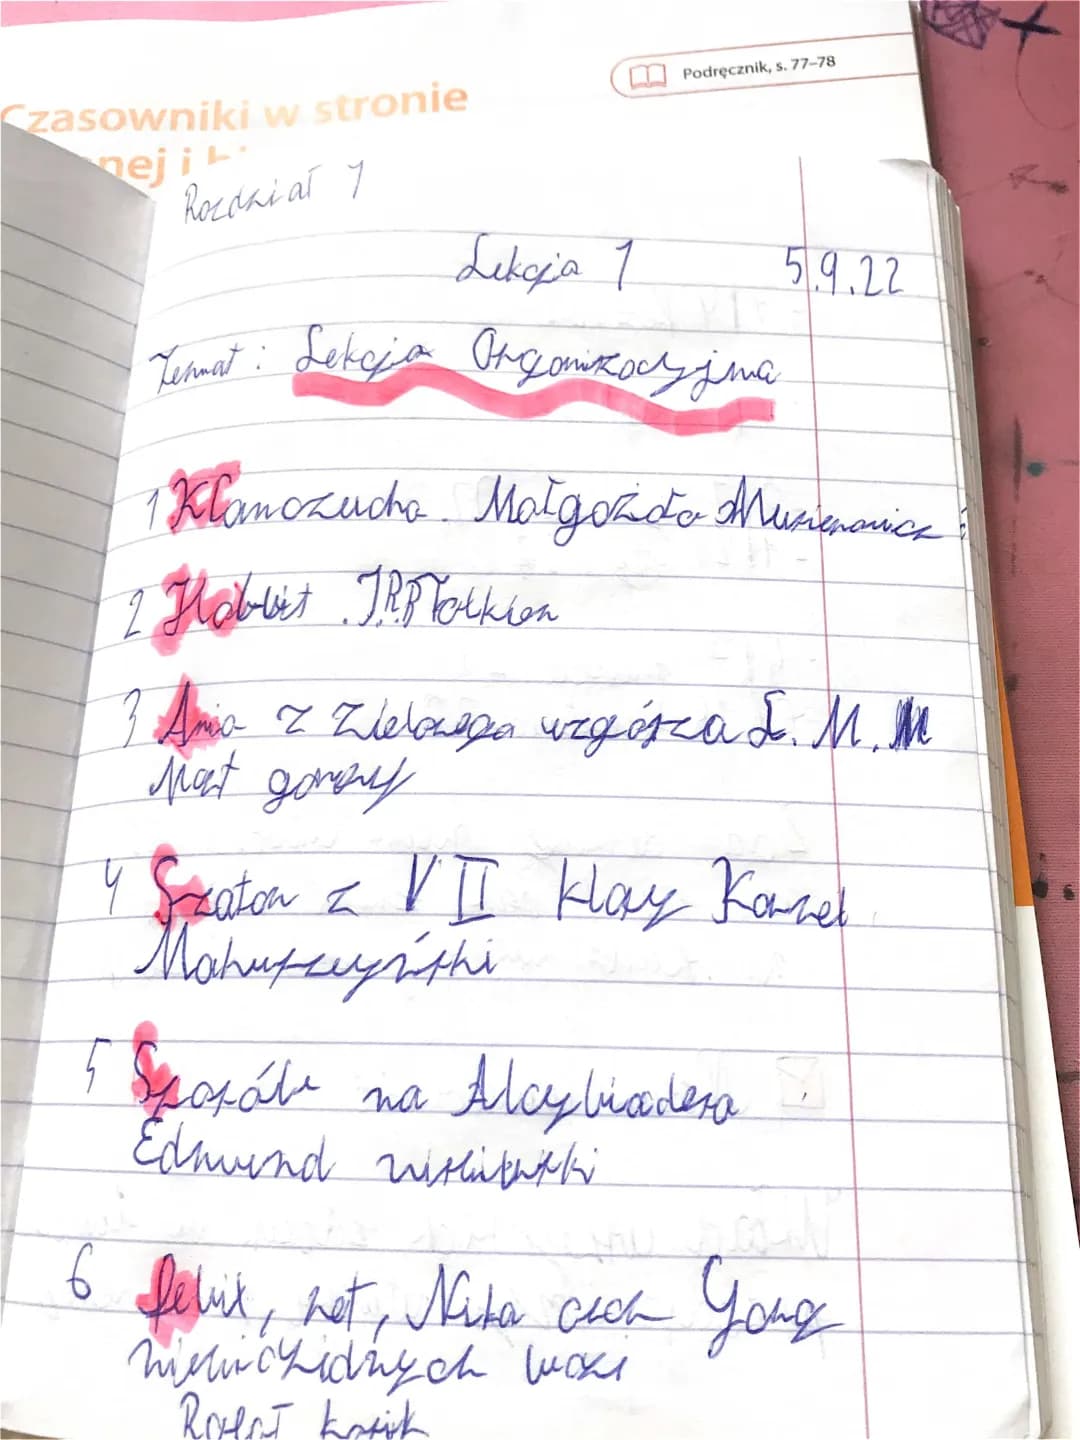 Podręcznik, s. 77–78
Czasowniki w stronie
nej i
Rozdział 1
Lekcja 1 5.9.22
Temat: Lekcja Organizacyjna
1 Kłamczucha. Małgożata Musierowicz
2 Hobbit J.R.R Tolkien
3 Ania z Zielonego wzgórza L. M. M
Mat gomery
4 Szatan z VII klasy Kornel
Makuszyński
5 Sposób na Alcybiadesa
Edmund niziurski
6 felix, net, Nika oraz Gang
niewidzialnych ludzi
Rafał kosik